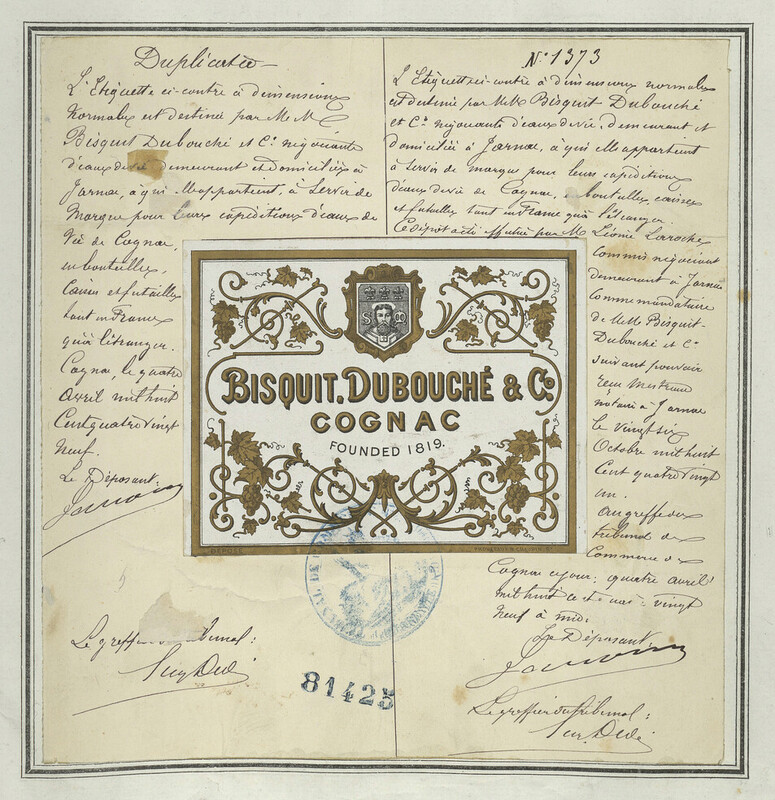 Duplicata
L'Etiquette ci-contre à dimensions
normales est destinée par MM
Bisquit Dubouché et Cie négociants
d'eaux de vie demeurant et domiciliés à
Jarnac, à qui elle appartient, à servir de
marque pour leurs expéditions d'eaux de
Vie de Cognac,
en bouteilles,
Caisses et futailles
tant en France
qu'à l'étranger.
Cognac, le quatre
avril mil huit
Cent quatre vingt
neuf.
Le Déposant:
Le greffier du tribunal:
N° 1373
L'Etiquette ci-contre à dimensions normales
est destinée par MM Bisquit Dubouché
et Cie négociants d'eaux de vie, demeurant et
domiciliés à Jarnac, à qui elle appartient
à servir de marque pour leurs expéditions
d'eaux de vie de Cognac, en bouteilles caisses
et futailles tant en France qu'à l'étranger.
Ce dépôt a été effectué par M Léonie Larroche
commis négociant
demeurant à Jarnac
comme mandataire
de MM Bisquit-
Dubouché et Cie
suivant pouvoir
notaire à Jarnac
le vingt six
Octobre mil huit
Cent quatre vingt
un.
au greffe du
tribunal de
Commerce de
Cognac ce jour: quatre avril
mil huit cent quatre-vingt
neuf à midi
Le Déposant:
Le greffier du tribunal:
BISQUIT, DUBOUCHÉ & Co.
COGNAC
FOUNDED 1819.
DÉPOSÉ
81423